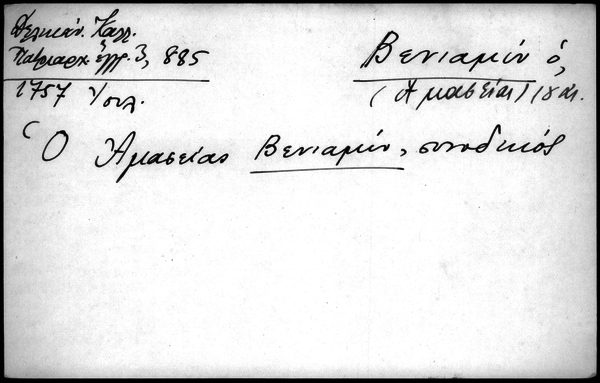 Δελικάν. Καλλ.
Πατριαρχ. ἔγγρ. 3, 885
1757 Ἰουλ.
Βενιαμίν ὁ,
(Ἀμασείας)
Ὁ Ἀμασείας Βενιαμίν, συνοδικός